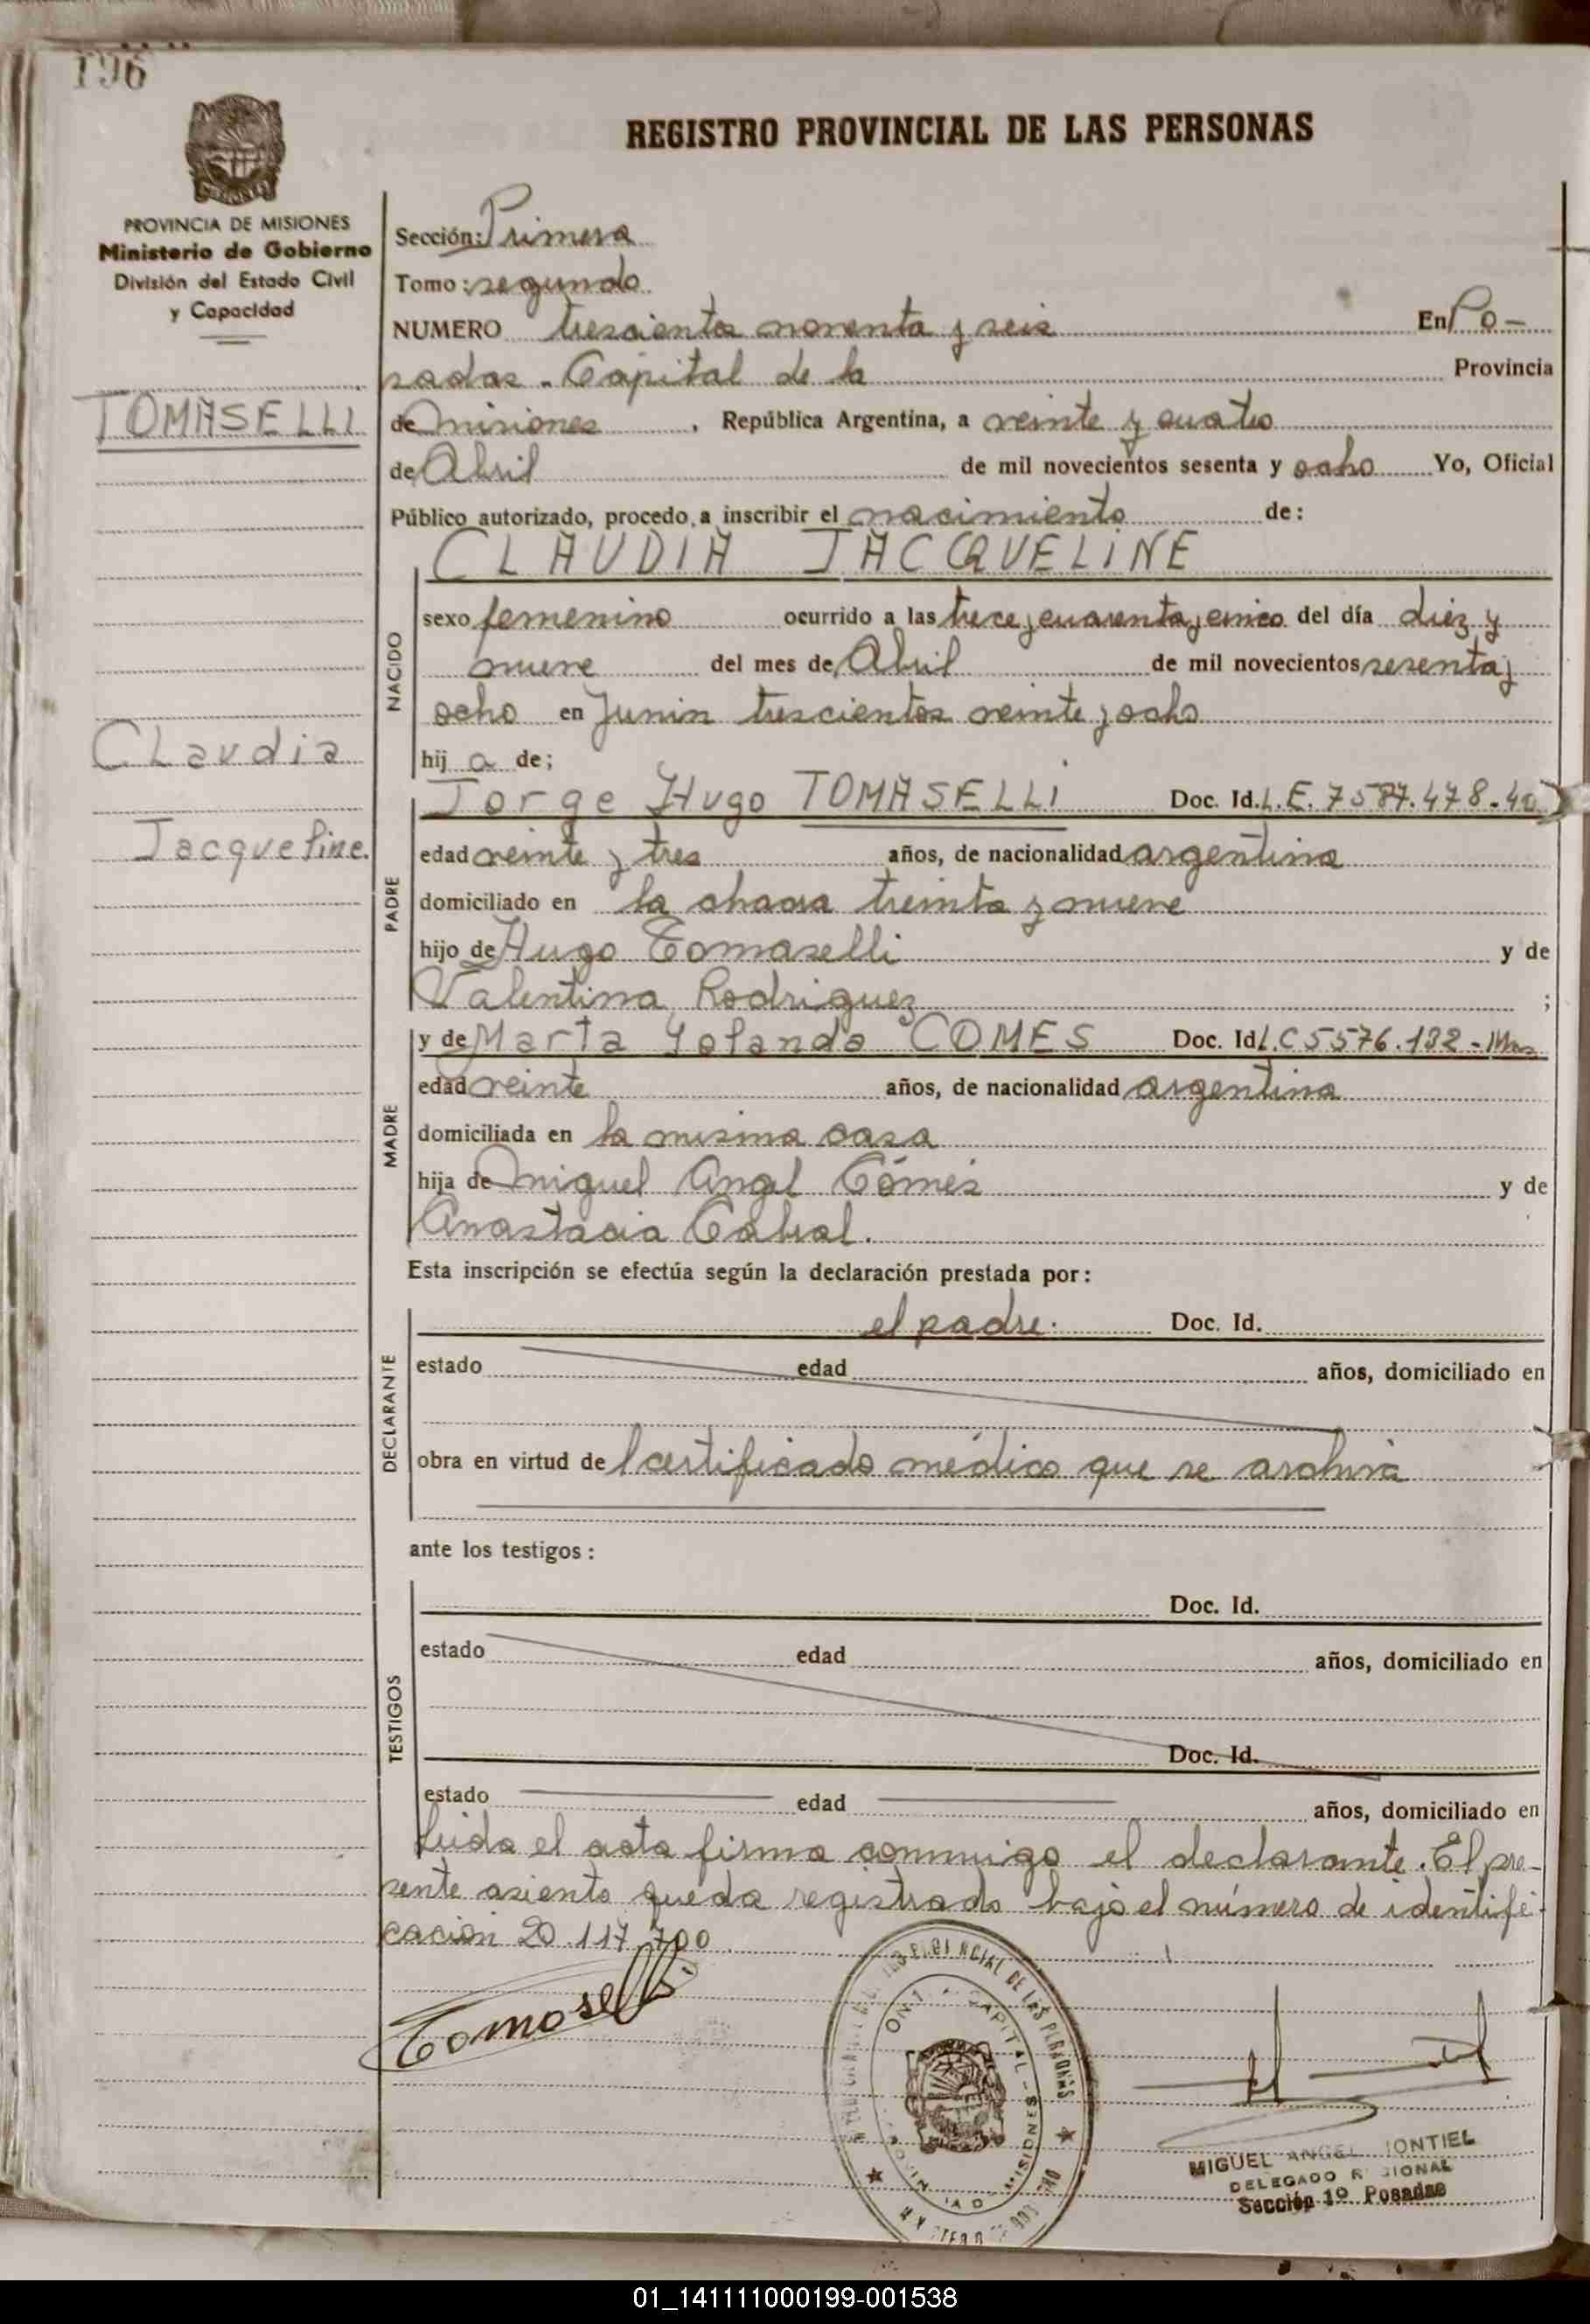 196
REGISTRO PROVINCIAL DE LAS PERSONAS
PROVINCIA DE MISIONES
Ministerio de Gobierno
División del Estado Civil
y Capacidad
TOMASELLI
Claudia
Jacqueline.
Sección: Primera
Tomo: segundo
NUMERO trescientos noventa y seis En Po-
sadas. Capital de la Provincia
de Misiones, República Argentina, a veinte y cuatro
de Abril de mil novecientos sesenta y ocho Yo, Oficial
Público autorizado, procedo a inscribir el nacimiento de:
NACIDO
CLAUDIA JACQUELINE
sexo femenino ocurrido a las trece y cuarenta y cinco del día diez y
nueve del mes de Abril de mil novecientos sesenta y
ocho en Junin trescientos veinte y ocho
hija de;
PADRE
Jorge Hugo TOMASELLI Doc. Id. L.E. 7587.478.
edad veinte y tres años, de nacionalidad argentina
domiciliado en la chacra treinta y nueve
hijo de Hugo Tomaselli y de
Valentina Rodriguez ;
MADRE
y de Marta Yolanda COMES Doc. Id L.C 5576.132-
edad veinte años, de nacionalidad argentina
domiciliada en la misma casa
hija de Miguel Angel Cómes y de
Anastacia Cabral.
Esta inscripción se efectúa según la declaración prestada por:
DECLARANTE
el padre. Doc. Id.
estado edad años, domiciliado en
obra en virtud del certificado médico que se archiva
ante los testigos:
TESTIGOS
Doc. Id.
estado edad años, domiciliado en
Doc. Id.
estado edad años, domiciliado en
Leida el acta firma conmigo el declarante. El pre-
sente asiento queda registrado bajo el número de identifi-
cación 20.117.700
Tomaselli
PROVINCIAL DE LAS PERSONAS
CAPITAL - MISIONES
MIGUEL ANGEL MONTIEL
DELEGADO REGIONAL
Sección 1º Posadas
01_141111000199-001538